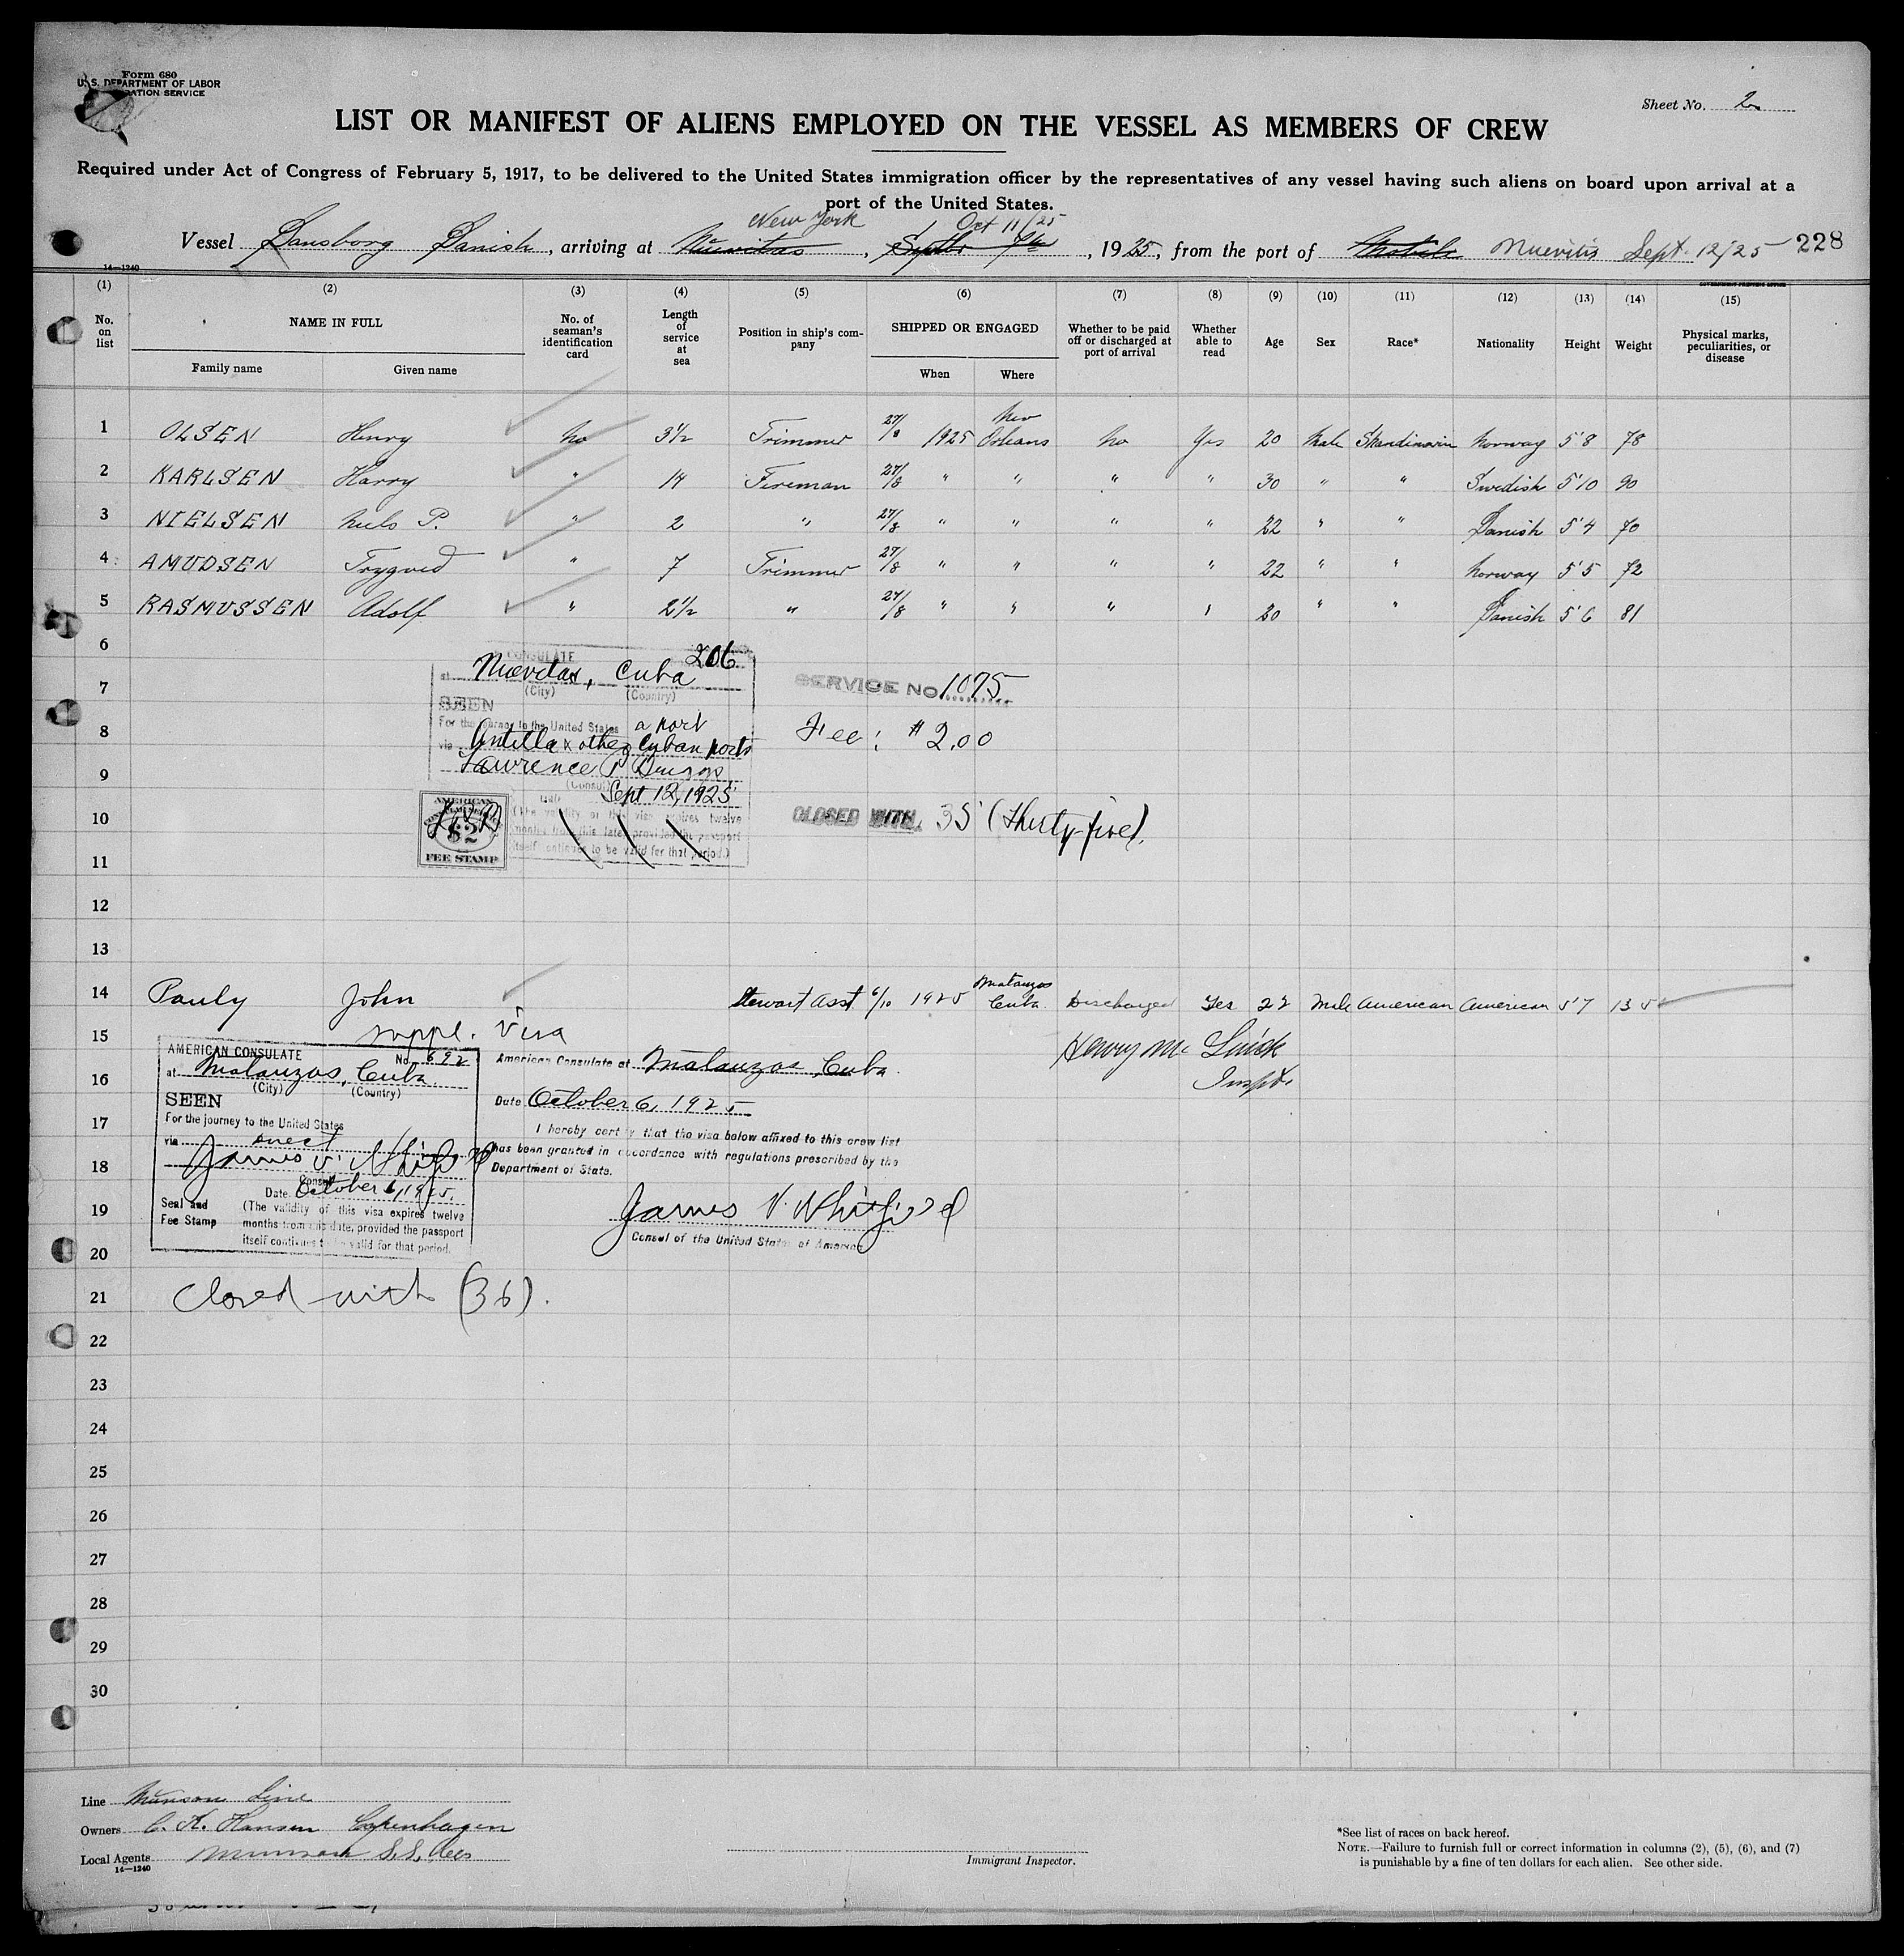 Form 680
U. S. DEPARTMENT OF LABOR
RATION SERVICE
Sheet No. 2
LIST OR MANIFEST OF ALIENS EMPLOYED ON THE VESSEL AS MEMBERS OF CREW
Required under Act of Congress of February 5, 1917, to be delivered to the United States immigration officer by the representatives of any vessel having such aliens on board upon arrival at a
port of the United States.
New York Oct 11/25
Vessel Dansborg Danish, arriving at Nuevitas, Septbr, 1925, from the port of Mobile Nuevitis Sept. 12/25 228
14—1240
GOVERNMENT PRINTING OFFICE
(1) (2) (3) (4) (5) (6) (7) (8) (9) (10) (11) (12) (13) (14) (15)
No. on list
NAME IN FULL
Family name
Given name
No. of seaman's identification card
Length of service at sea
Position in ship's company
SHIPPED OR ENGAGED
When
Where
Whether to be paid off or discharged at port of arrival
Whether able to read
Age
Sex
Race*
Nationality
Height
Weight
Physical marks, peculiarities, or disease
1 OLSEN Henry No 3½ Trimmer 27/8 1925 New Orleans No Yes 20 Male Skandinavin Norway 5'8 78
2 KARLSEN Harry " 14 Fireman 27/8 " " " " 30 " " Swedish 5'10 90
3 NIELSEN Niels P. " 2 " 27/8 " " " " 22 " " Danish 5'4 70
4 AMUDSEN Trygved " 7 Trimmer 27/8 " " " " 22 " " Norway 5'5 72
5 RASMUSSEN Adolf " 2½ " 27/8 " " " " 20 " " Danish 5'6 81
6
CONSULATE 206
at Nuevitas, Cuba
(City) (Country)
7
SERVICE NO 1075
SEEN
For the journey to the United States a port
8
via Antilla & other Cuban ports
Fee: $2.00
Lawrence P Briggs
9
(Consul)
Date Sept 12, 1925
(The validity of this visa expires twelve
months from this date, provided the passport
itself continues to be valid for that period.)
AMERICAN
$2
FEE STAMP
10
CLOSED WITH 35 (thirty-five).
11
12
13
14 Pauly John Stewart Asst 6/10 1925 Matanzas Cuba Discharged Yes 22 Male American American 5'7 135
15 suppl. Visa
Henry Mc
Inspt.
AMERICAN CONSULATE No. 692
at Matanzas, Cuba
(City) (Country)
SEEN
For the journey to the United States
via direct
James V. Whitfield
Consul
Date October 6, 1925.
Seal and
Fee Stamp
(The validity of this visa expires twelve
months from this date, provided the passport
itself continues to be valid for that period.
American Consulate at Matanzas, Cuba.
16
Date October 6, 1925
17
I hereby certify that the visa below affixed to this crew list
has been granted in accordance with regulations prescribed by the
Department of State.
18
19
James V. Whitfield
Consul of the United States of America
20
21 Closed with (36).
22
23
24
25
26
27
28
29
30
Line Munson Line
Owners C. K. Hansen Copenhagen
Local Agents Munson S.S. Line
14—1240
Immigrant Inspector.
*See list of races on back hereof.
NOTE.—Failure to furnish full or correct information in columns (2), (5), (6), and (7)
is punishable by a fine of ten dollars for each alien. See other side.